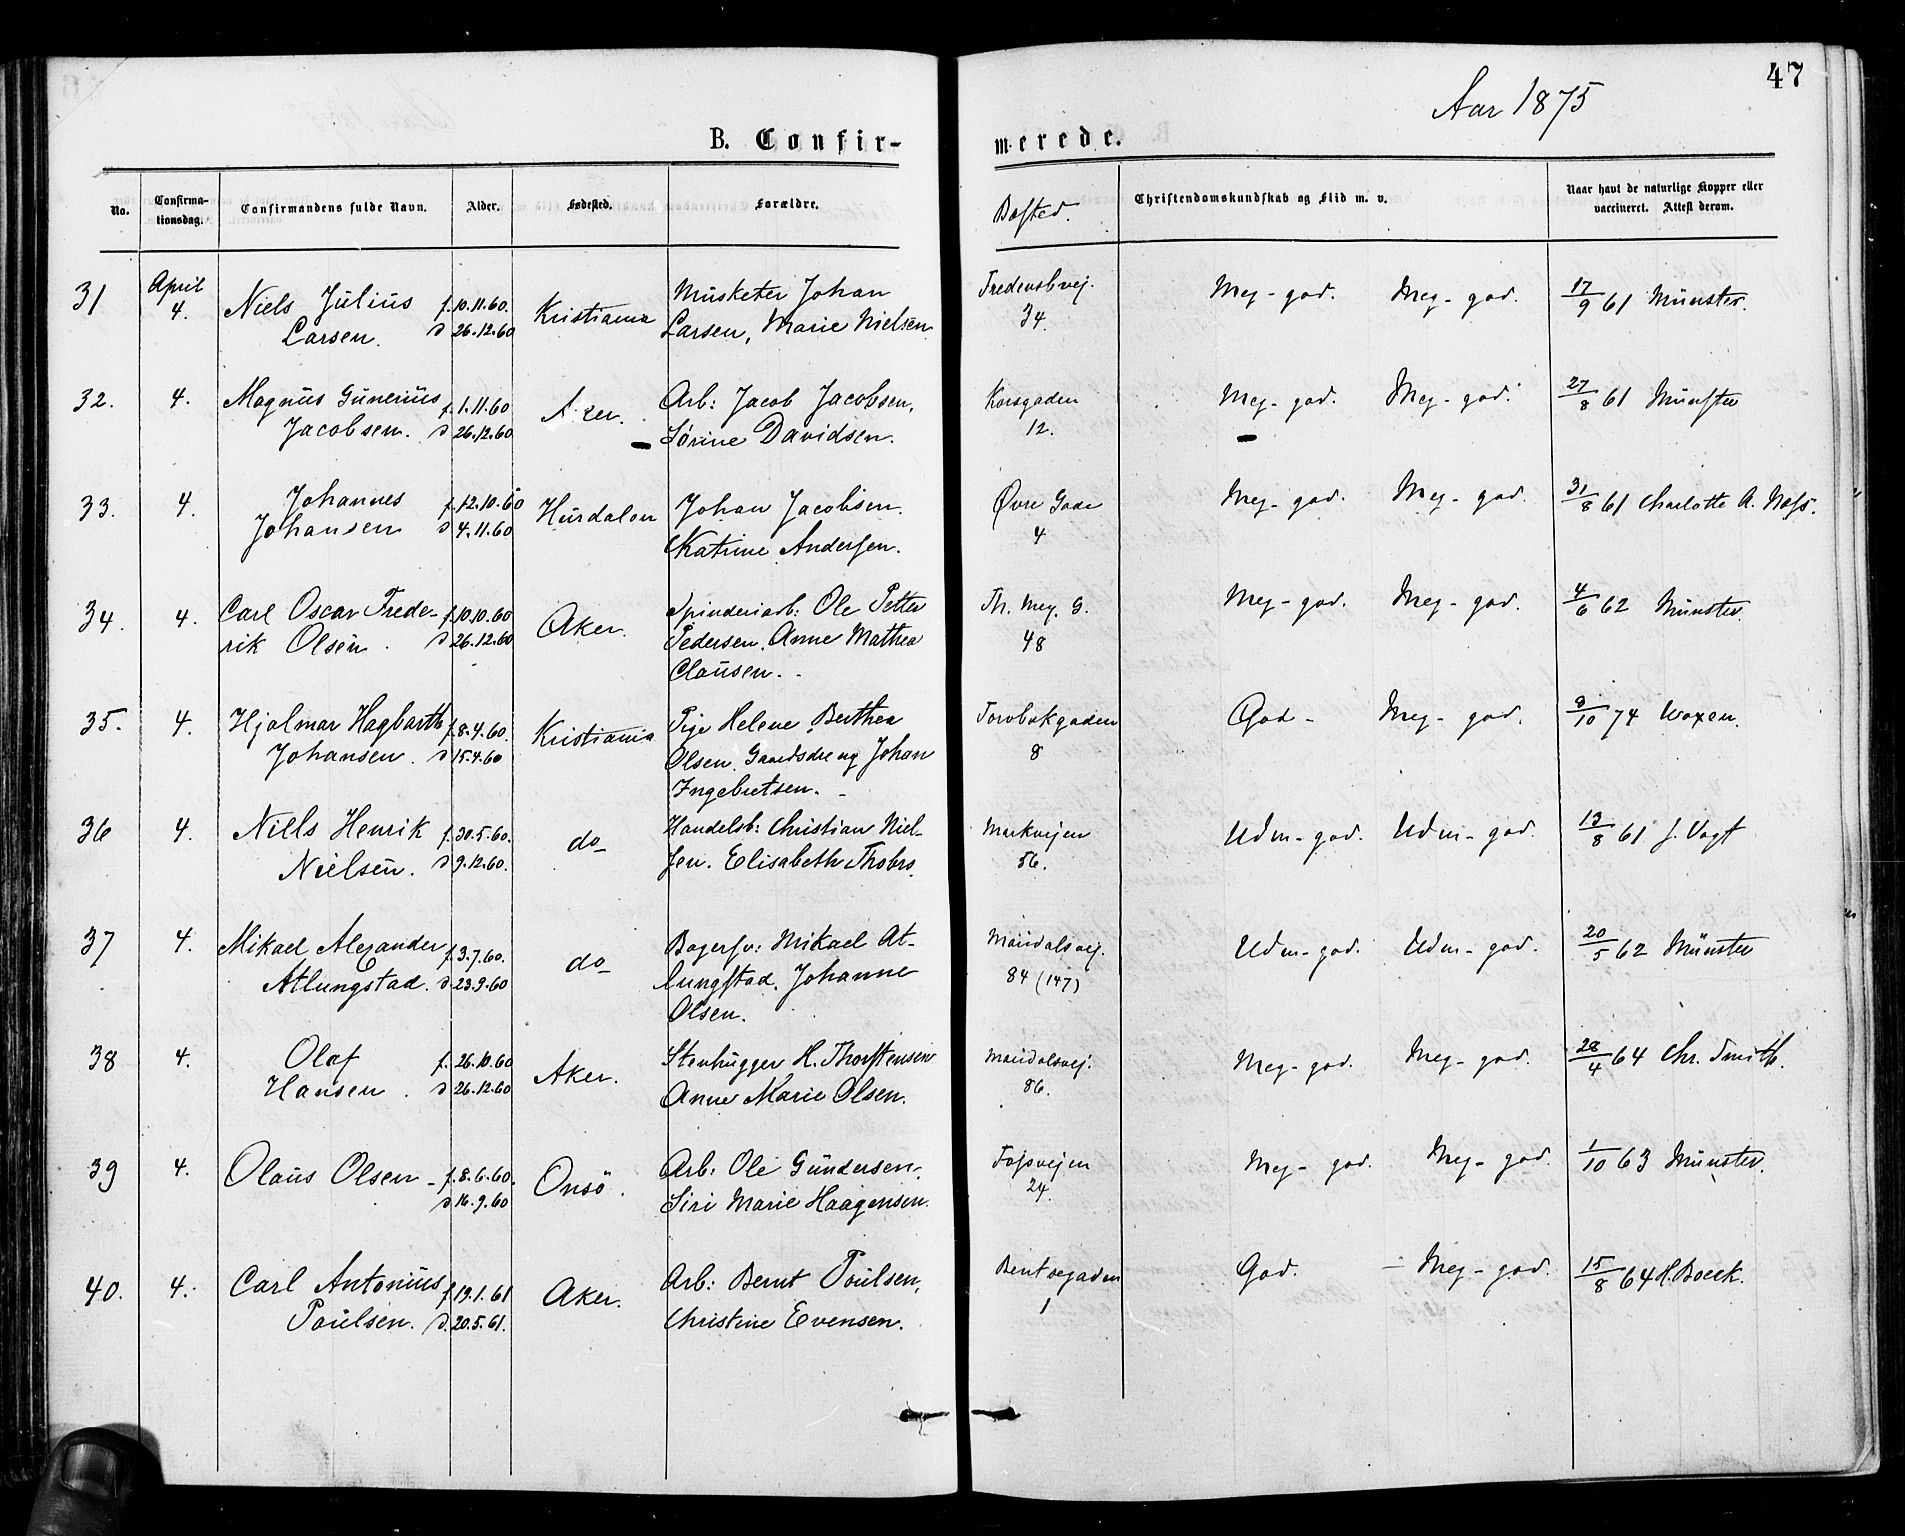 47
Aar 1875
B. Confirmerede.
No. Confirmationsdag. Confirmandens fulde Navn. Alder. Fødested. Forældre. Bosted. Christendomskundskab og Flid m. v. Naar havt de naturlige Kopper eller vaccineret. Attest derom.
31 April 4. Niels Julius f. 10.11.60. Kristiania Musketer Johan Fredensbvej. Meg - god. Meg - god. 17/9 61 Münster.
Larsen. d 26.12.60 Larsen, Marie Nielsen 34.
32. 4. Magnus Gunerius f. 1.11.60 Aker. Arb: Jacob Jacobsen, Korsgaden Meg - god. Meg - god. 27/8 61 Münster
Jacobsen. d 26.12.60 Sørine Davidsen. 12.
33. 4. Johannes f. 12.10.60 Hurdalen Johan Jacobsen. Øvre Gade Meg - god. Meg - god. 31/8 61 Charlotte A. Næss.
Johansen d 4.11.60 Katrine Andersen. 4
34. 4. Carl Oscar Frede- f. 10.10.60 Aker. Spinderiarb: Ole Petter Th. Mey. G. Meg - god. Meg - god. 4/6 62 Münster.
rik Olsen. d 26.12.60 Pedersen. Anne Mathea 48
Clausen.
35. 4. Hjalmar Hagbarth f. 8.4.60. Kristiania Pige Helene Berthea Torvbakgaden God - Meg - god. 9/10 74 Woxen.
Johansen. d 15.4.60 Olsen. Gaardsdreng Johan 8
Ingebretsen.
36 4. Niels Henrik f. 30.5.60. do Handelsb: Christian Niel- Markvejen Udm - god. Udm - god. 13/8 61 J. Vogt
Nielsen. d 9.12.60. sen. Elisabeth Thobrs. 56.
37 4. Mikael Alexander f. 3.7.60. do Bagersv: Mikael At- Maridalsvej. Udm - god. Udm - god. 20/5 62 Münster
Atlungstad. d. 23.9.60 lungstad. Johanne 84 (147)
Olsen.
38 4. Olaf f. 26.10.60 Aker. Stenhugger H. Thorstensen Maridalsvej. Meg - god. Meg - god. 28/4 64 Chr. Smith.
Hansen. d 26.12.60 Anne Marie Olsen. 86.
39 4. Olaus Olsen - f. 8.6.60. Onsö. Arb: Ole Gundersen, Fossvejen Meg - god. Meg - god. 1/10 63 Münster.
d 16.9.60 Siri Marie Haagensen. 24.
40. 4. Carl Antonius f. 19.1.61 Aker. Arb: Bernt Poulsen, Bentsegaden God. - Meg - god. 15/8 64 H. Boeck.
Poulsen. d. 20.5.61. Christine Evensen. 1